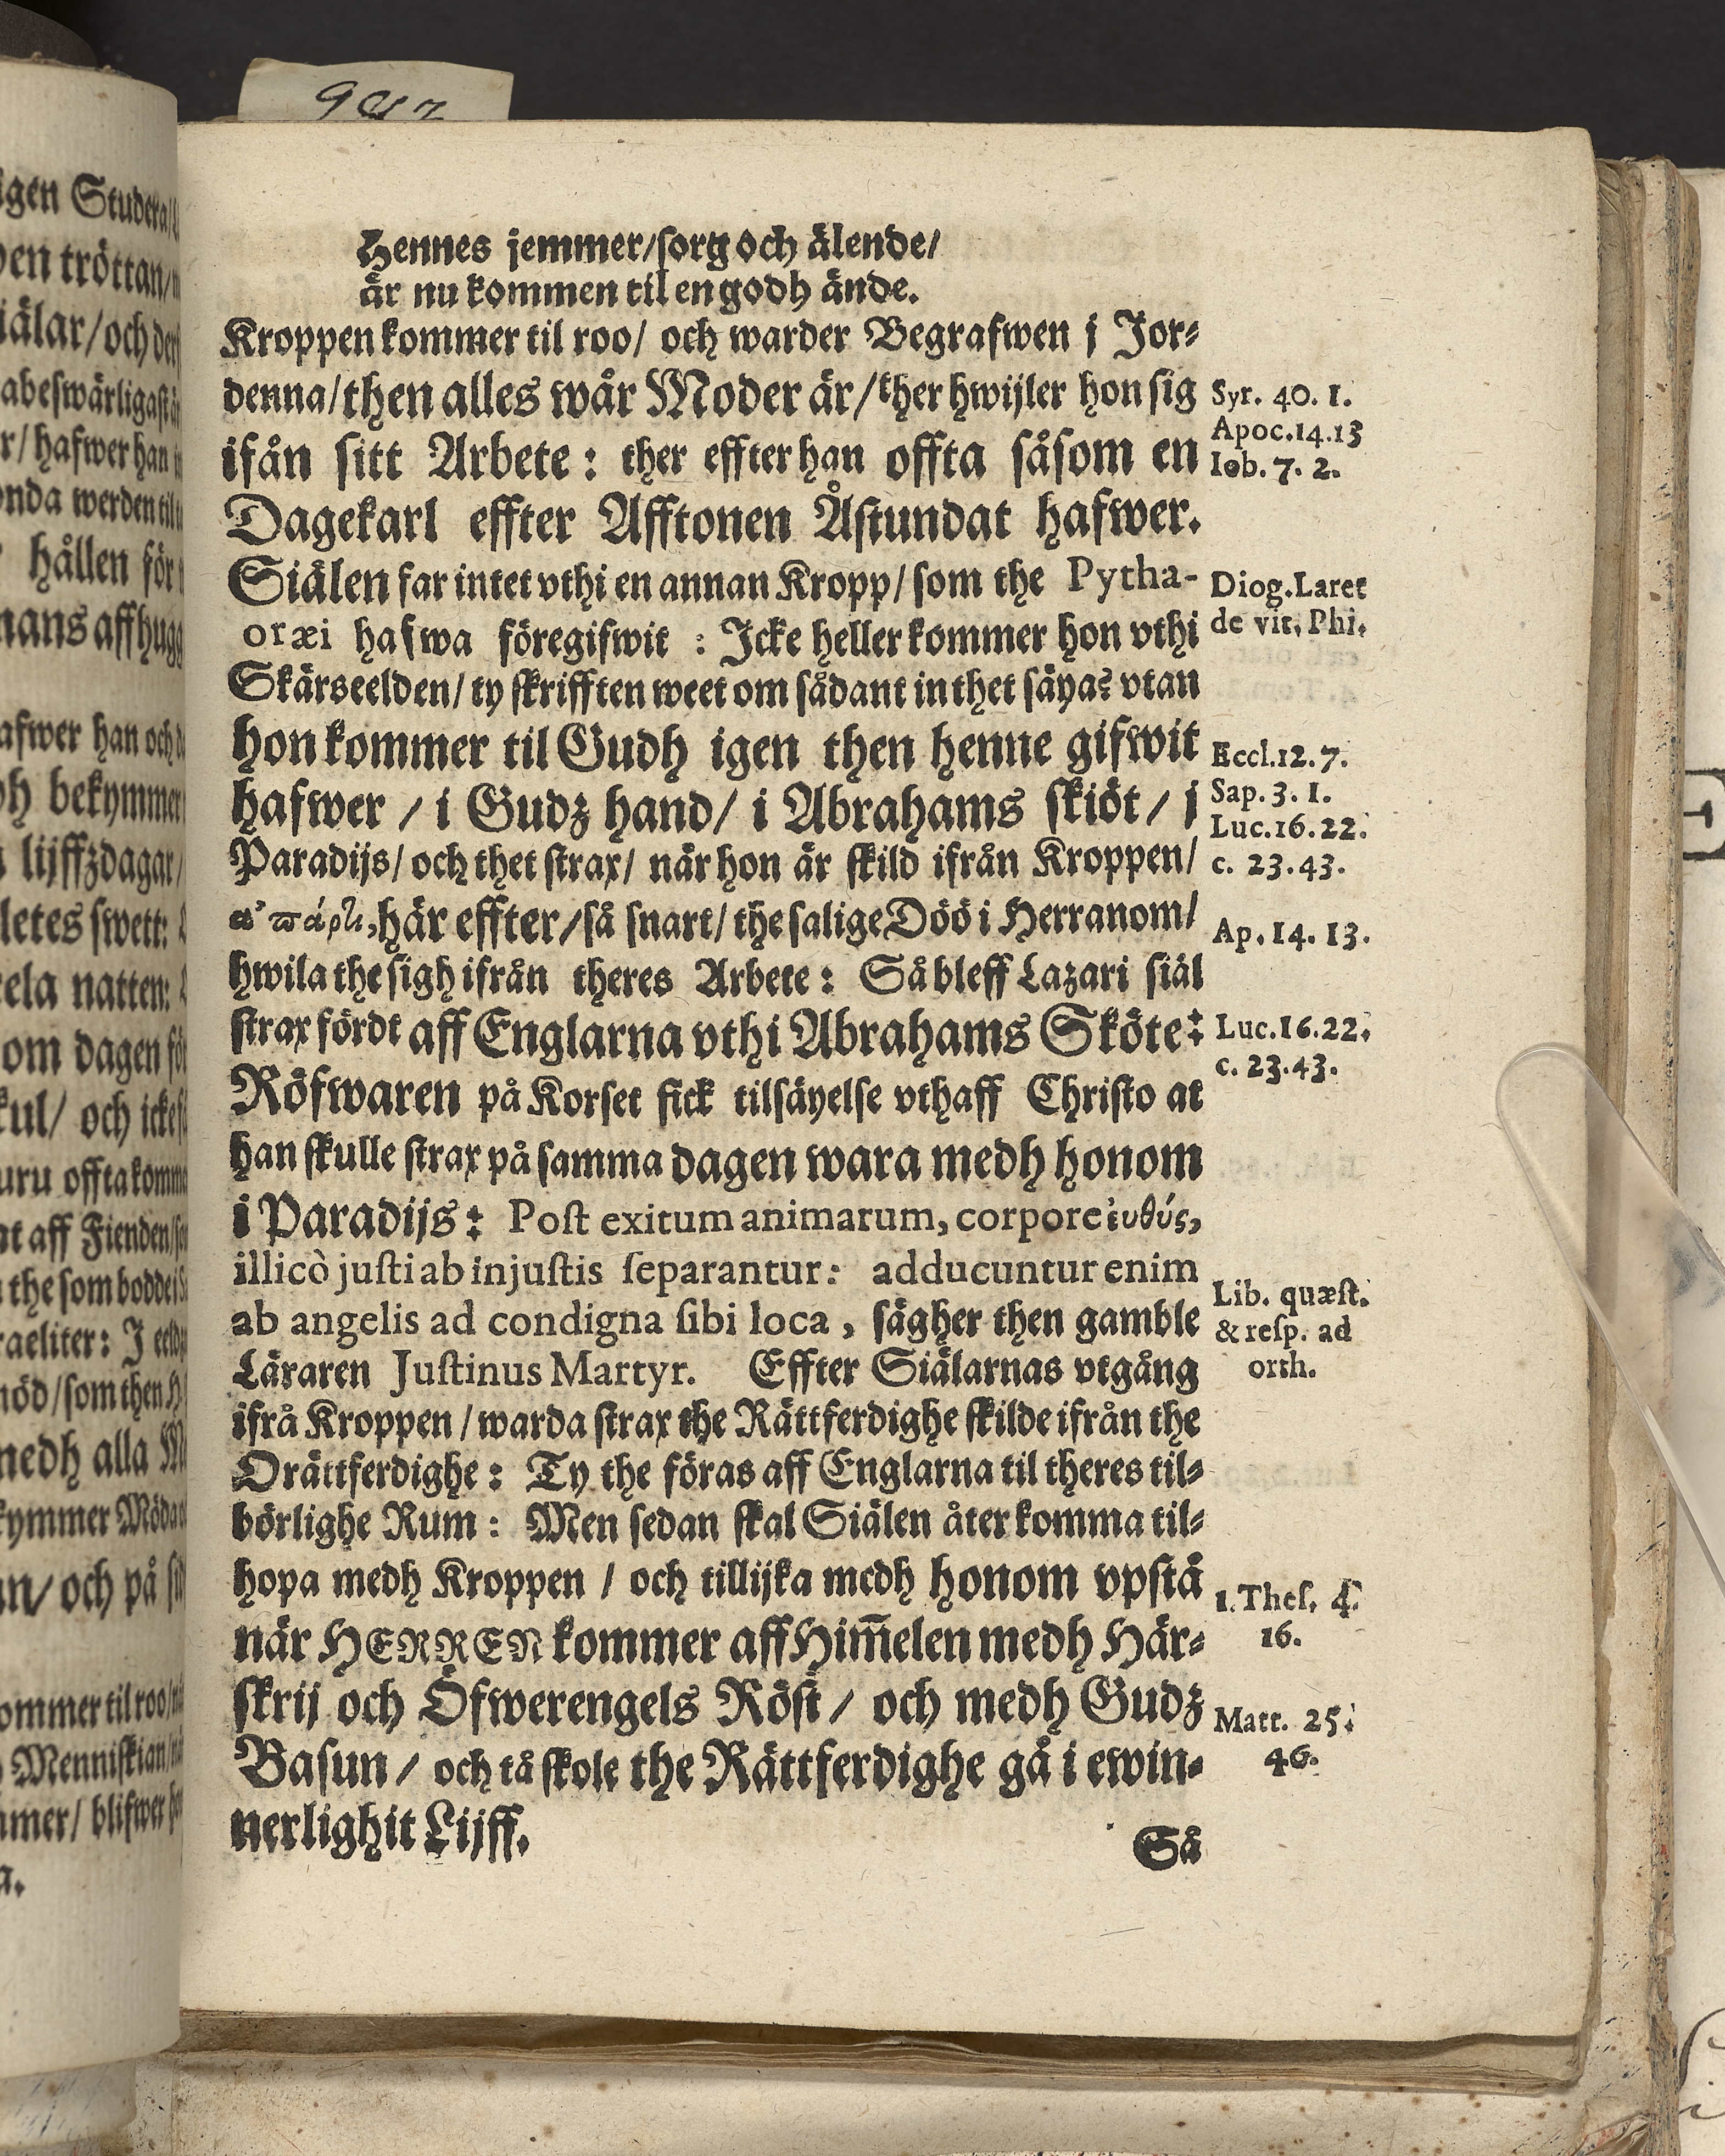 Hennes jemmer/sorg och älende/
är nu kommen til en godh ände.
Kroppen kommer til roo/ och warder Begrafwen j Jor⸗
denna/then alles wår Moder är/ther hwijler hon sig
ifån sitt Arbete: ther effter han offta såsom en
Dagekarl effter Afftonen Åstundat hafwer.
Siälen far intet vthi en annan Kropp/ som the Pytha-
oræi hafwa föregifwit : Icke heller kommer hon vthi
Skärseelden/ ty skrifften weet om sådant inthet säya? vtan
hon kommer til Gudh igen then henne gifwit
hafwer / i Gudz hand/ i Abrahams skiöt / j
Paradijs/ och thet strax/ när hon är skild ifrån Kroppen/
ἀπάρτι, här effter/så snart/ the salige Döö i Herranom/
hwila the sigh ifrån theres Arbete: Så bleff Lazari siäl
strax fördt aff Englarna vthi Abrahams Sköte:
Röfwaren på Korset fick tilsäyelse vthaff Christo at
han skulle strax på samma dagen wara medh honom
i Paradijs: Post exitum animarum, corpore ἐυθύς,
illicò justi ab injustis separantur: adducuntur enim
ab angelis ad condigna sibi loca, sägher then gamble
Läraren Justinus Martyr. Effter Siälarnas vtgång
ifrå Kroppen / warda strax the Rättferdighe skilde ifrån the
Orättferdighe: Ty the föras aff Englarna til theres til⸗
börlighe Rum: Men sedan skal Siälen åter komma til⸗
hopa medh Kroppen / och tillijka medh honom vpstå
när HERREN kommer aff Him̄elen medh Här⸗
skrij och Öfwerengels Röst / och medh Gudz
Basun / och tå skole the Rättferdighe gå i ewin⸗
nerlighit Lijff.
Så
Syr. 40. 1.
Apoc.14.13
Iob. 7. 2.
Diog.Laret
de vit. Phi.
Eccl.12.7.
Sap. 3. 1.
Luc.16.22.
c. 23.43.
Ap. 14. 13.
Luc.16.22.
c. 23.43.
Lib. quæst.
& resp. ad
orth.
1. Thes. 4.
16.
Matt. 25.
46.
igen Studera/
en tröttan/
iälar/och
abeswärligast
r/ hafwer han
onda werden til
hållen för
mans affhugg
afwer han och
dh bekymmer
lijffzdagar/
letes swett:
ela natten:
om dagen
kul/ och icke
uru offta komm
at aff Fienden
the som bodde i
raeliter: I
nöd/som then
medh alla
kymmer Möda
an/ och på
ommer til roo/
Menniskian/
mmer/ blifwer
a.